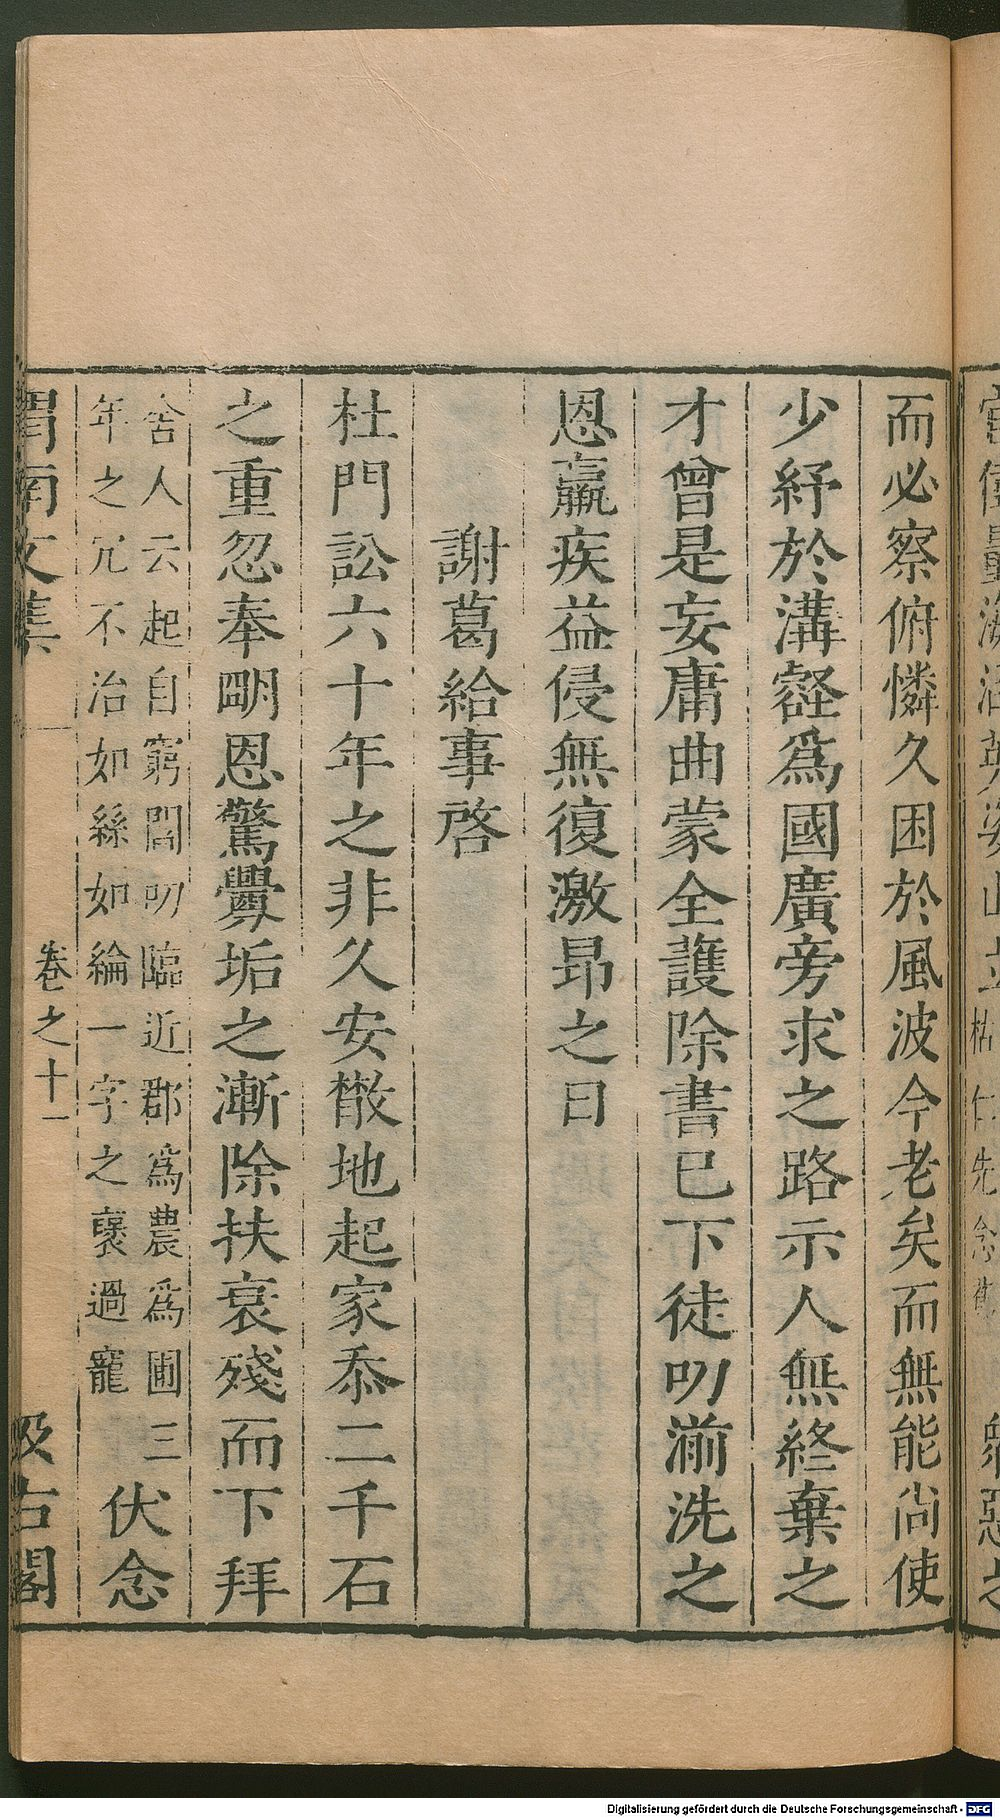 而必察俯憐久困於風波今老矣而無能尚使
少紓於溝壑爲國廣旁求之路示人無終棄之
才曾是妄庸曲蒙全護除書已下徒叨湔洗之
恩羸疾益侵無復激昂之日
謝葛給事啓
杜門訟六十年之非久安散地起家忝二千石
之重忽奉明恩驚釁垢之漸除扶衰殘而下拜
舍人云起自窮閻叨臨近郡爲農爲圃三
年之宂不治如絲如綸一字之褒過寵
伏念
渭南文集
卷之十一
汲古閣
Digitalisierung gefördert durch die Deutsche Forschungsgemeinschaft - DFG